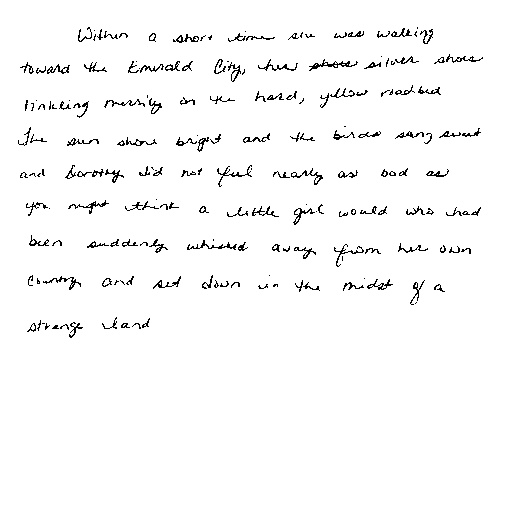 Within a short time she was walking
toward the Emerald City, her shoes silver shoes
tinkling merrily on the hard, yellow roadbed
The sun shone bright and the birds sang sweet
and Dorothy did not feel nearly as bad as
you might think a little girl would who had
been suddenly whisked away from her own
country and set down in the midst of a
strange land